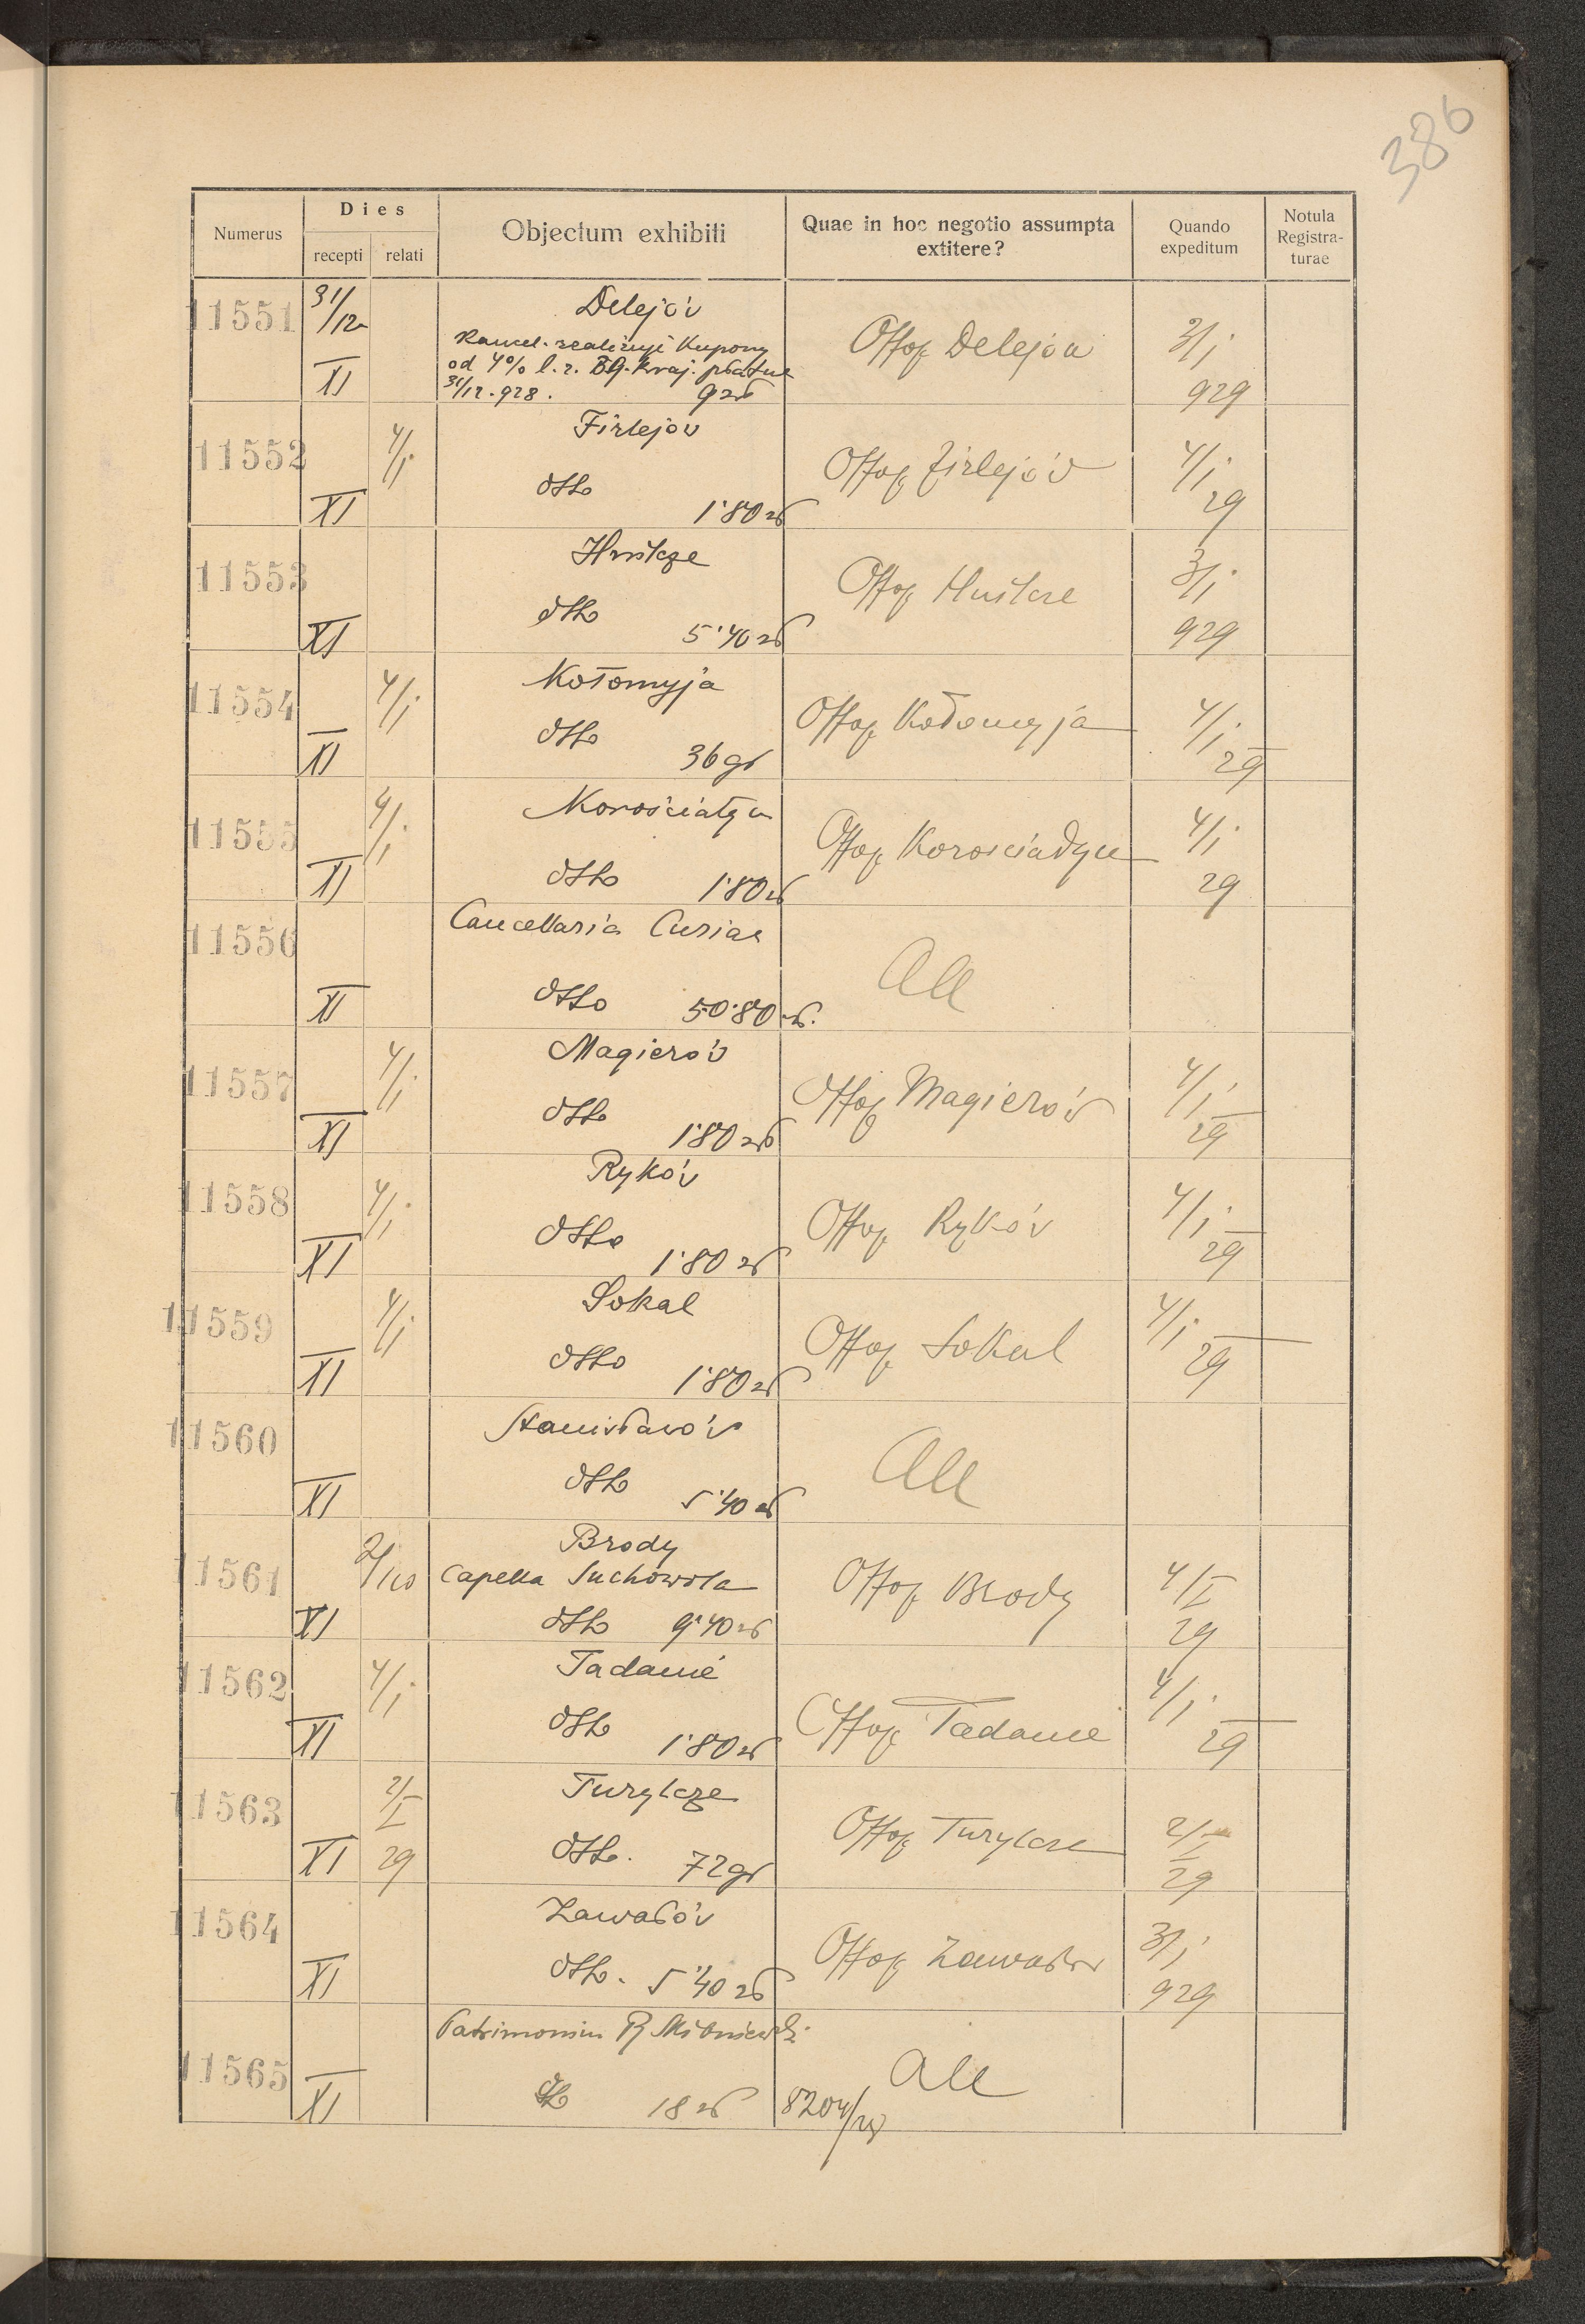 386
Numerus
Dies
recepti relati
Objectum exhibiti
Quae in hoc negotio assumpta
extitere?
Quando
expeditum
Notula
Registra-
turae
11551 31/12 XI
Delejów
Kancel. realizuje Kupony
od 4% l. z. Bq. Kraj. płatne
31/12.928. 9 zł
Offof Delejów
3/I 929
11552 XI 4/I
Firlejów
dtto 1'80 zł
Offof Firlejów
4/I 29
11553 XI
Hnilcze
dtto 5'40 zł
Offof Hnilcze
3/I 929
11554 XI 4/I
Kołomyja
dtto 36 gr
Offof Kołomyja
4/I 29
11555 XI 4/I
Korościatyn
dtto 1'80 zł
Offof Korościatyn
4/I 29
11556 XI
Cancellaria Curiae
dtto 50'80 zł.
All
11557 XI 4/I
Magierów
dtto 1'80 zł
Offof Magierów
4/I 29
11558 XI 4/I
Ryków
dtto 1'80 zł
Offof Ryków
4/I 29
11559 XI 4/I
Sokal
dtto 1'80 zł
Offof Sokal
4/I 29
11560 XI
Stanisławów
dtto 5'40 zł
All
11561 XI
Brody
Capella Suchowola
dtto 9'40 zł
Offof Brody
4/I 29
11562 XI 4/I
Tadanie
dtto 1'80 zł
Offof Tadanie
4/I 29
11563 XI 2/I 29
Turylcze
dtto. 72 gr
Offof Turylcze
2/I 29
11564 XI
Zawałów
dtto. 5'40 zł
Offof Zawałów
3/I 929
11565 XI
Patrimonium
18 zł
8204/28
All